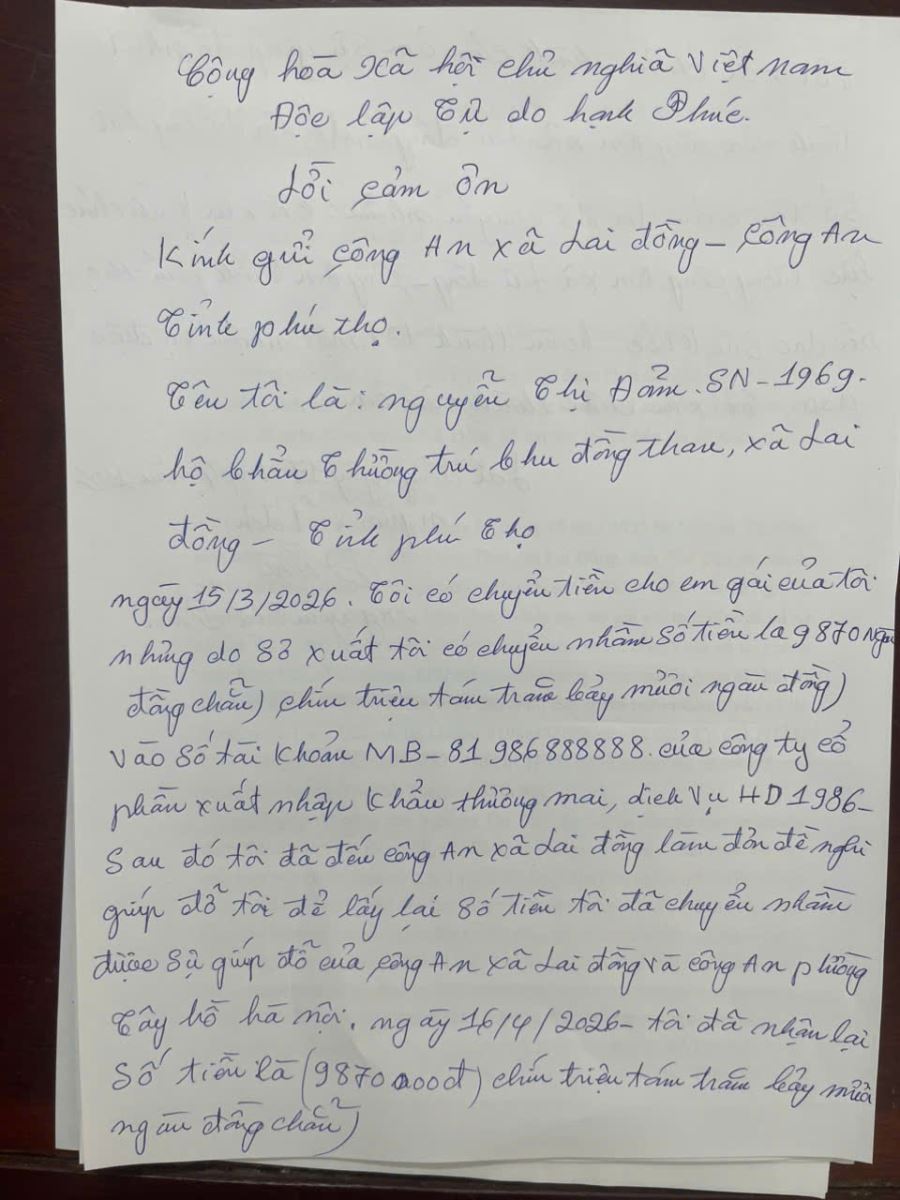 Cộng hòa Xã hội chủ nghĩa Việt nam
Độc lập Tự do hạnh Phúc.
Lời cảm ơn
Kính gửi công An xã Lai đồng - Công An
Tỉnh phú thọ.
Tên tôi là: nguyễn Thị Đảm. SN - 1969.
hộ khẩu Thường trú khu đồng than, xã Lai
đồng - Tỉnh phú Thọ
ngày 15/3/2026. Tôi có chuyển tiền cho em gái của tôi
nhưng do sơ xuất tôi có chuyển nhầm số tiền là 9870 ngàn
đồng chẵn) chín triệu tám trăm bảy mươi ngàn đồng)
vào số tài khoản MB - 81 986888888. của công ty cổ
phần xuất nhập khẩu thương mai, dịch vụ HD 1986-
Sau đó tôi đã đến công An xã Lai đồng làm đơn đề nghị
giúp đỡ tôi để lấy lại số tiền tôi đã chuyển nhầm
được sự giúp đỡ của công An xã Lai đồng và công An phường
Tây hồ hà nội. ngày 16/4/2026 - tôi đã nhận lại
Số tiền là (9870000đ) chín triệu tám trăm bảy mươi
ngàn đồng chẵn)